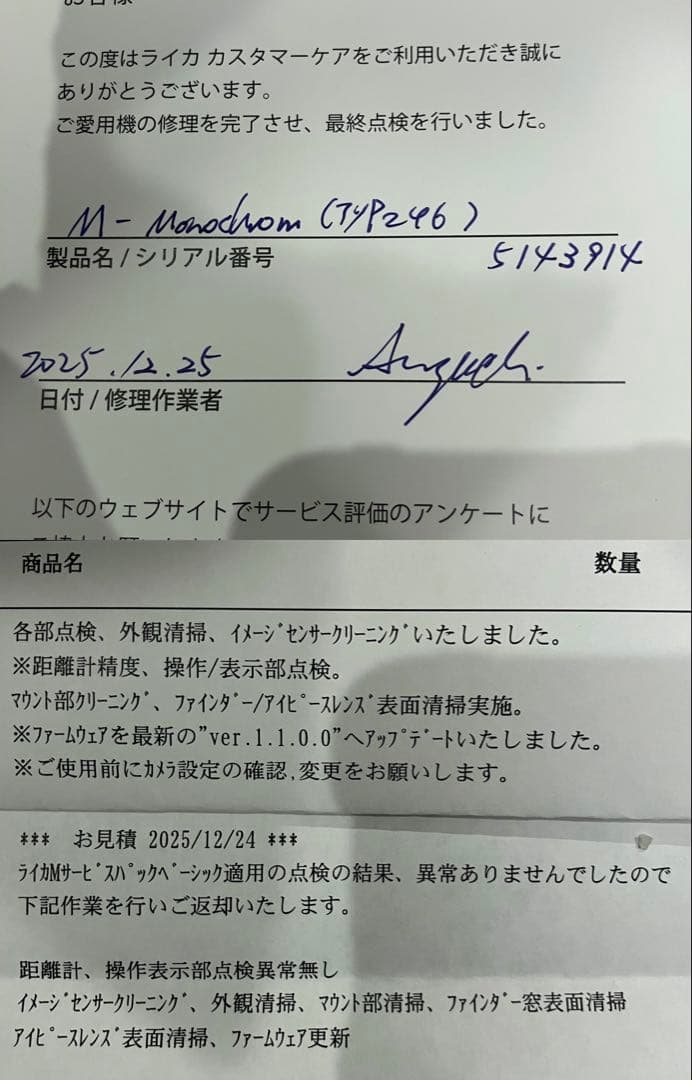 お客様
この度はライカ カスタマーケアをご利用いただき誠に
ありがとうございます。
ご愛用機の修理を完了させ、最終点検を行いました。
M - Monochrom (TYP246)
製品名 / シリアル番号 5143914
2025.12.25
日付 / 修理作業者
以下のウェブサイトでサービス評価のアンケートに
商品名 数量
各部点検、外観清掃、ｲﾒｰｼﾞｾﾝｻｰｸﾘｰﾆﾝｸﾞいたしました。
※距離計精度、操作/表示部点検。
ﾏｳﾝﾄ部ｸﾘｰﾆﾝｸﾞ、ﾌｧｲﾝﾀﾞｰ/ｱｲﾋﾟｰｽﾚﾝｽﾞ表面清掃実施。
※ﾌｧｰﾑｳｪｱを最新の”ver.1.1.0.0”へｱｯﾌﾟﾃﾞｰﾄいたしました。
※ご使用前にｶﾒﾗ設定の確認,変更をお願いします。
*** お見積 2025/12/24 ***
ﾗｲｶMｻｰﾋﾞｽﾊﾟｯｸﾍﾞｰｼｯｸ適用の点検の結果、異常ありませんでしたので
下記作業を行いご返却いたします。
距離計、操作表示部点検異常無し
ｲﾒｰｼﾞｾﾝｻｰｸﾘｰﾆﾝｸﾞ、外観清掃、ﾏｳﾝﾄ部清掃、ﾌｧｲﾝﾀﾞｰ窓表面清掃
ｱｲﾋﾟｰｽﾚﾝｽﾞ表面清掃、ﾌｧｰﾑｳｪｱ更新